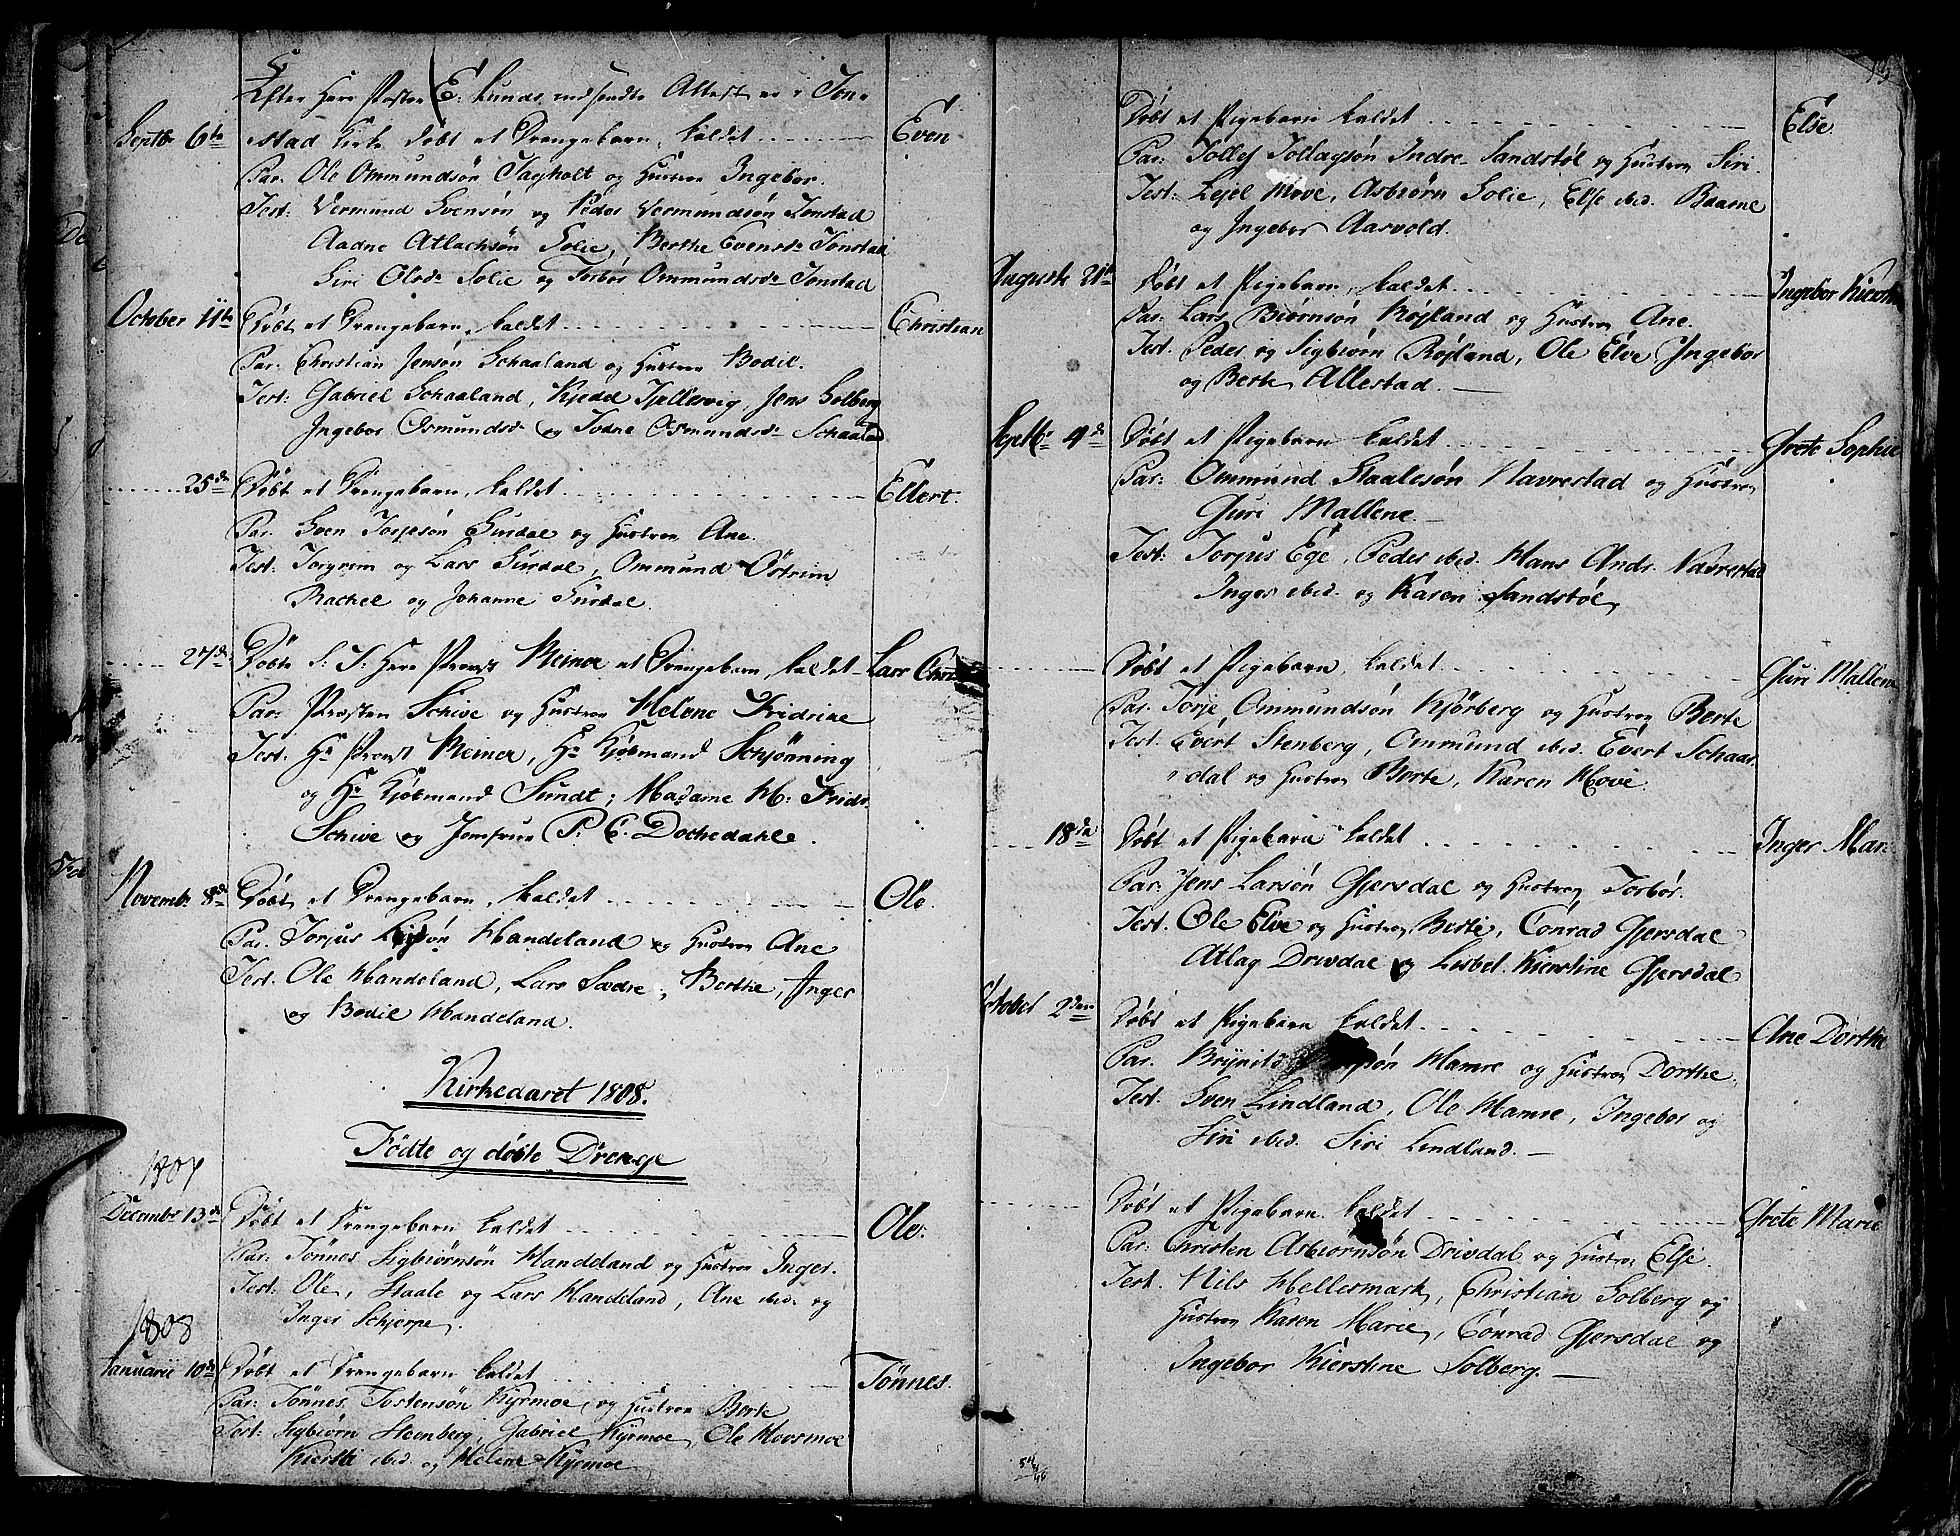 Efter Herr Pastor E: Lunds indsendte Attest er i Jon-
Septbr 6te stad Kirke døbt et Drengebarn, kaldet Even
Par. Ole Ommundsøn Tagholt og Hustroe Ingebor.
Test: Vermund Svensøn og Peder Vermundsøn Jonstad
Aadne Atlachsøn Solie, Berthe Evensd. Jonstad
Siri Olsd. Solie og Torbor Ommundsd. Jonstad
October 11te Døbt et Drengebarn, kaldet Christian
Par: Christian Jensøn Schaaland og Hustroe Bodil.
Test: Gabriel Schaaland, Kjedel Tjellesvig, Jens Solberg
Ingebor Osmundsd. og Todne Osmundsd. Schaaland
25de Døbt et Drengebarn, kaldet Ellert.
Par. Sven Torjesøn Surdal og Hustroe Ane.
Test: Torgrim og Lars Surdal, Ommund Østrem
Rachel og Johanne Surdal.
27de Døbte S: T: Herr Provst Meiner et Drengebarn, kaldet Lars
Par: Præsten Schive og Hustroe Helene Fridrine
Test. Hr Provst Meiner, Hr Kjøbmand Schjønning
og Hr Kjøbmand Sundt; Madame H: Fridr.
Schive og Jomfrue P. C. Dochedahl.
Novembr 8de Døbt et Drengebarn, kaldet Ole.
Par. Torjus Handeland og Hustroe Ane
Test. Ole Handeland, Lars Sædre, Berthe, Inger
og Bodil Handeland.
Kirkeaaret 1808.
Fødte og døbte Drenge
1807
Decembr 13de Døbt et Drengebarn kaldet Ole.
Par: Tønnes Sigbiørnsøn Handeland og Hustroe Inger.
Test: Ole, Staale og Lars Handeland, Ane ibid. og
Inger Schjerpe.
1808
Januarii 10de Døbt et Drengebarn kaldet Tønnes.
Par: Tønnes Tostensøn Kyrmoe og Hustroe Berte
Test: Sigbiørn Steenberg, Gabriel Kyrmoe, Ole Moosmoe
Kiersti ibid. og Helene Kyrmoe
Døbt et Pigebarn kaldet Else.
Par: Tollef Tollagsøn Indre-Sandstøl og Hustroe Siri.
Test: Lejel Move, Asbiørn Solie, Else ibid. Baarne
og Ingebor Aarvold.
Augusti 21de Døbt et Pigebarn, kaldet Ingebor Kierstin
Par: Lars Biørnsøn Røjland og Hustroe Ane.
Test. Peder og Sigbiørn Røjland, Ole Elve, Ingebor
og Berte Allestad.
Septbr 4de Døbt et Pigebarn kaldet Grete Sophie
Par: Ommund Staalesøn Navrestad og Hustroe
Guri Mallene.
Test: Torjus Ege, Peder ibid. Hans Ands. Navrestad
Inger ibid. og Karen Sandstøl,
Døbt et Pigebarn, kaldet Guri Mallene
Par. Torje Ommundsøn Kjørberg og Hustroe Berte
Test: Evert Stenberg, Ommund ibid. Evert Schaar-
dal og Hustroe Berte, Karen Move.
18de Døbt et Pigebarn kaldet Inger Mar.
Par: Jens Larsøn Gjersdal og Hustroe Torbor.
Test. Ole Elve og Hustroe Berte, Conrad Gjersdal
Atlag Drivdal og Lisbet Kierstine Gjersdal
October 2den Døbt et Pigebarn kaldet Ane Dorthe
Par. Brynild Hamre og Hustroe Dorthe.
Test. Sven Lindland, Ole Hamre, Ingebor og
Siri ibid. Siri Lindland.
Døbt et Pigebarn kaldet Grete Marie
Par: Christen Asbiornsøn Drivdal og Hustroe Else.
Test. Nils Hellesmark, Christian Solberg og
Hustroe Karen Marie, Conrad Gjersdal og
Ingebor Kierstine Solberg.